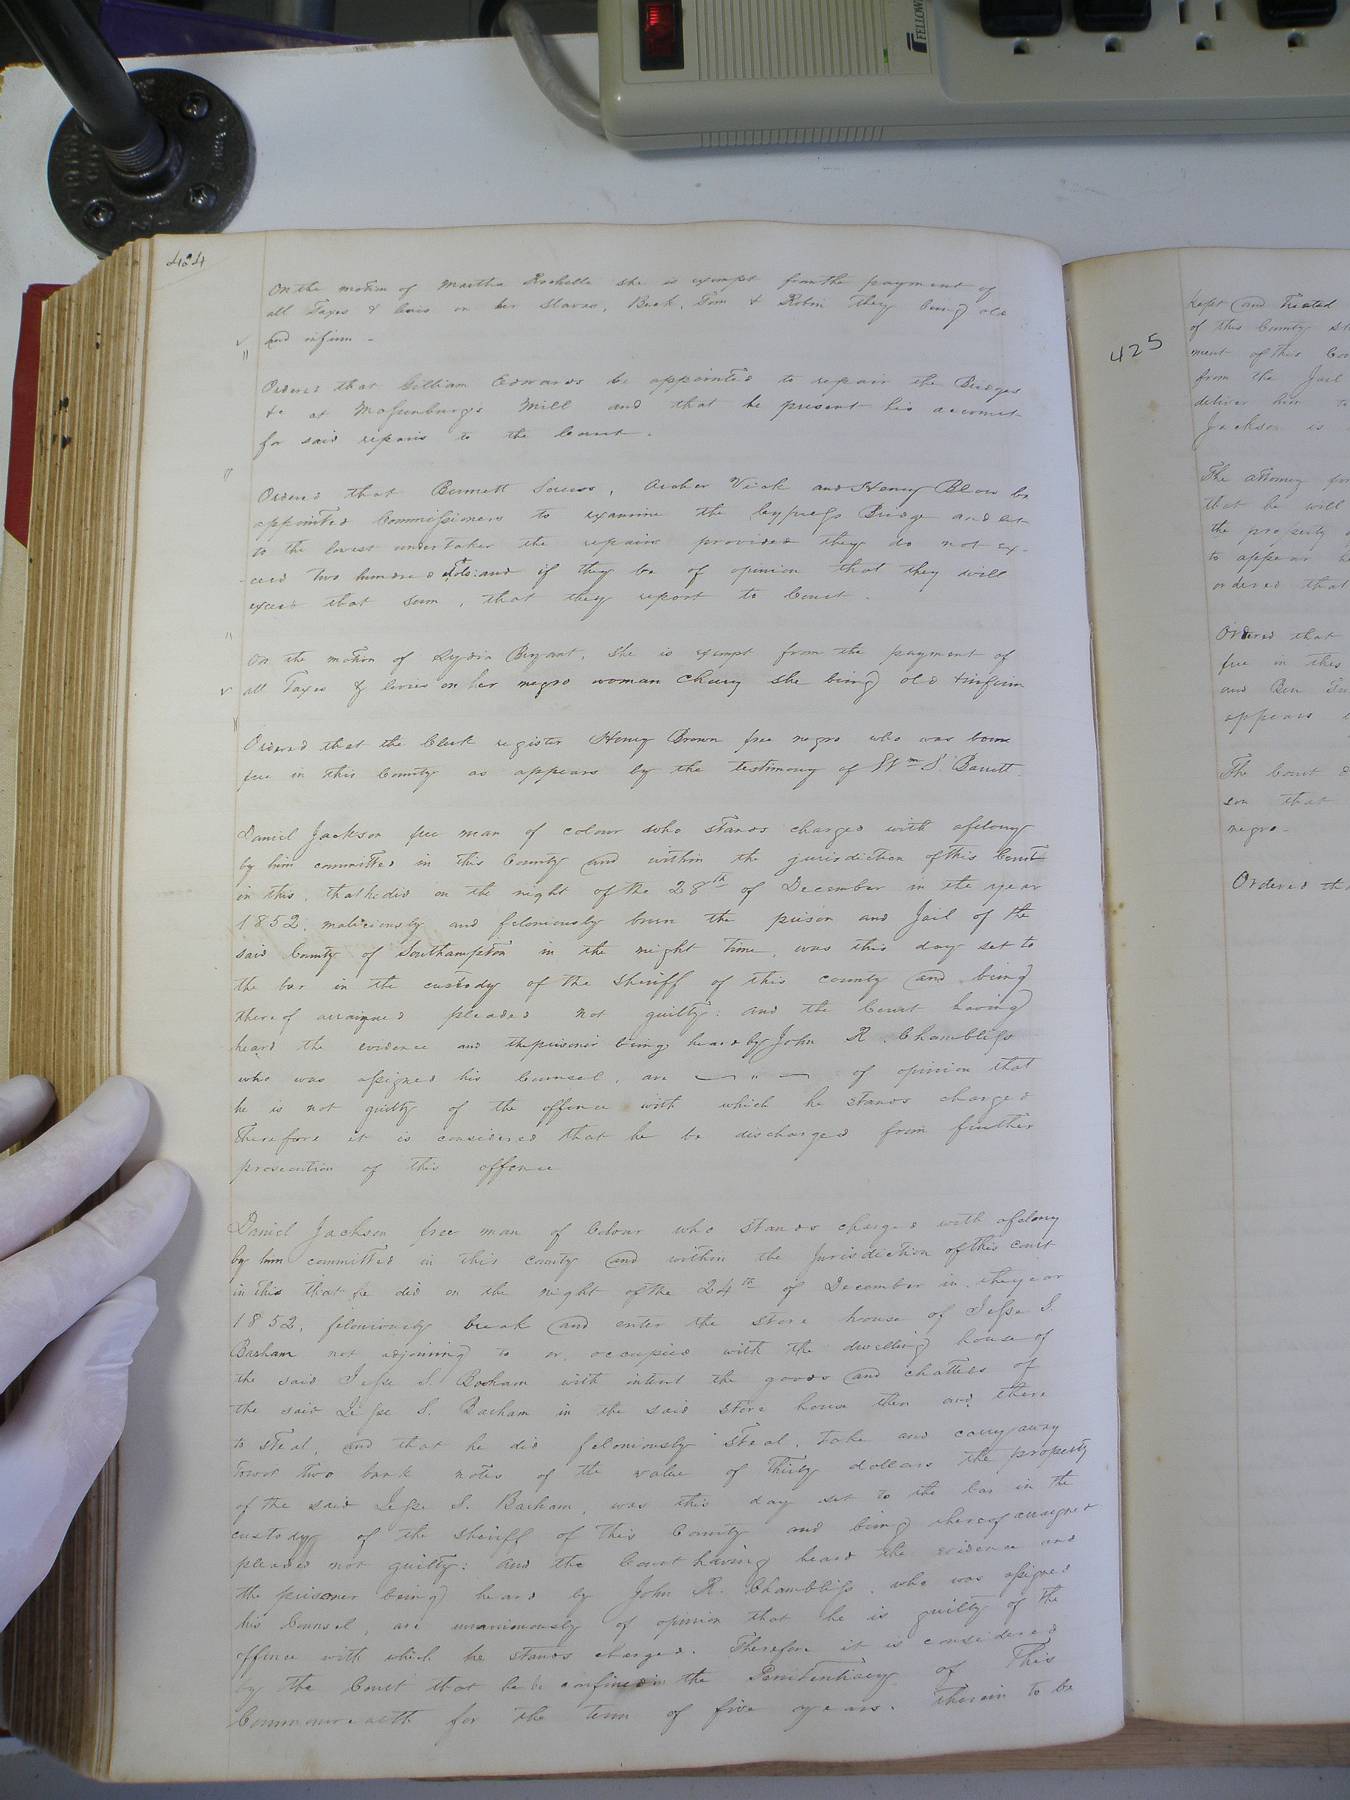 FELLOWES
424
On the motion of Martha Rochelle she is exempt from the payment of
all Taxes & levies on her slaves, Beck, Tom & Robin they being old
and infirm -
Ordered that William Edwards be appointed to repair the Bridges
&c at Massenburg's Mill and that he present his account
for said repairs to the Court.
Ordered that Bennett , Archer Vick and Henry Blow be
appointed Commissioners to examine the Cypress Bridge and let
to the lowest undertaker the repairs provided they do not ex-
-ceed two hundred Dols: and if they be of opinion that they will
exceed that sum, that they report to Court.
On the motion of Lydia Bryant, she is exempt from the payment of
all Taxes & levies on her negro woman Chary she being old & infirm
Ordered that the Clerk register Henry Brown free negro who was born
free in this County as appears by the testimony of Wm. S. Barrett
Daniel Jackson free man of colour who stands charged with a felony
by him committed in this County and within the jurisdiction of this Court
in this, that he did on the night of the 28th of December in the year
1852, maliciously and feloniously burn the prison and Jail of the
said County of Southampton in the night time, was this day set to
the bar in the custody of the Sheriff of this county and being
thereof arraigned pleaded not guilty: and the Court having
heard the evidence and the prisoner being heard by John R. Chambliss
who was assigned his Counsel, are — " — of opinion that
he is not guilty of the offence with which he stands charged
Therefore it is considered that he be discharged from further
prosecution of this offence
Daniel Jackson free man of Colour who stands charged with a felony
by him committed in this county and within the Jurisdiction of this court
in this that he did on the night of the 24th of December in the year
1852, feloniously break and enter the store house of Jesse S.
Barham not adjoining to or occupied with the dwelling house of
the said Jesse S. Barham with intent the goods and chattels of
the said Jesse S. Barham in the said store house then and there
to steal, and that he did feloniously steal, take and carry away
two bank notes of the value of Thirty dollars the property
of the said Jesse S. Barham, was this day set to the bar in the
custody of the Sheriff of this County and being thereof arraigned
pleaded not guilty: and the Court having heard the evidence and
the prisoner being heard by John R. Chambliss, who was assigned
his Counsel, are unanimously of opinion that he is guilty of the
offence with which he stands charged. Therefore it is considered
by the Court that he be confined in the Penitentiary of This
Commonwealth for the term of five years. therein to be
425
kept and Treated
of this County
ment of this
from the Jail
deliver him
Jackson is
The attorney for
that he will
the property
to appear
ordered that
Ordered that
free in this
and Ben
appears
The Court
son that
negro-
Ordered